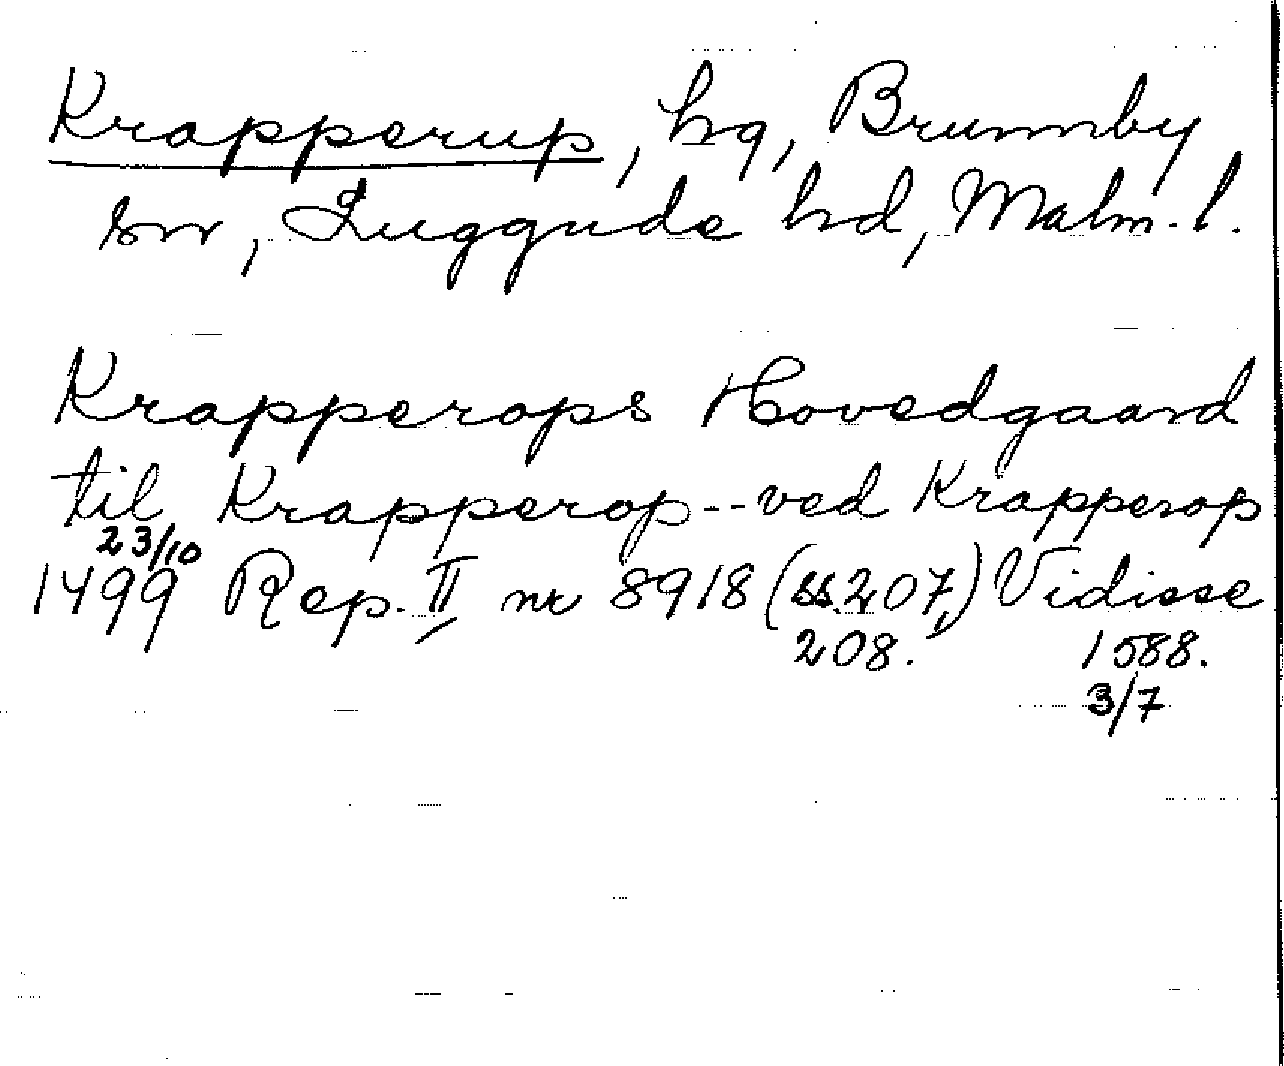 Krapperup, hg, Brunnby
sn, Luggude hd, Malm. l.
Krapperops Hovedgaard
til Krapperop -- ved Krapperop
23/10
1499 Rep. II nr 8918 (ss. 207,) Vidisse
208. 1588.
3/7